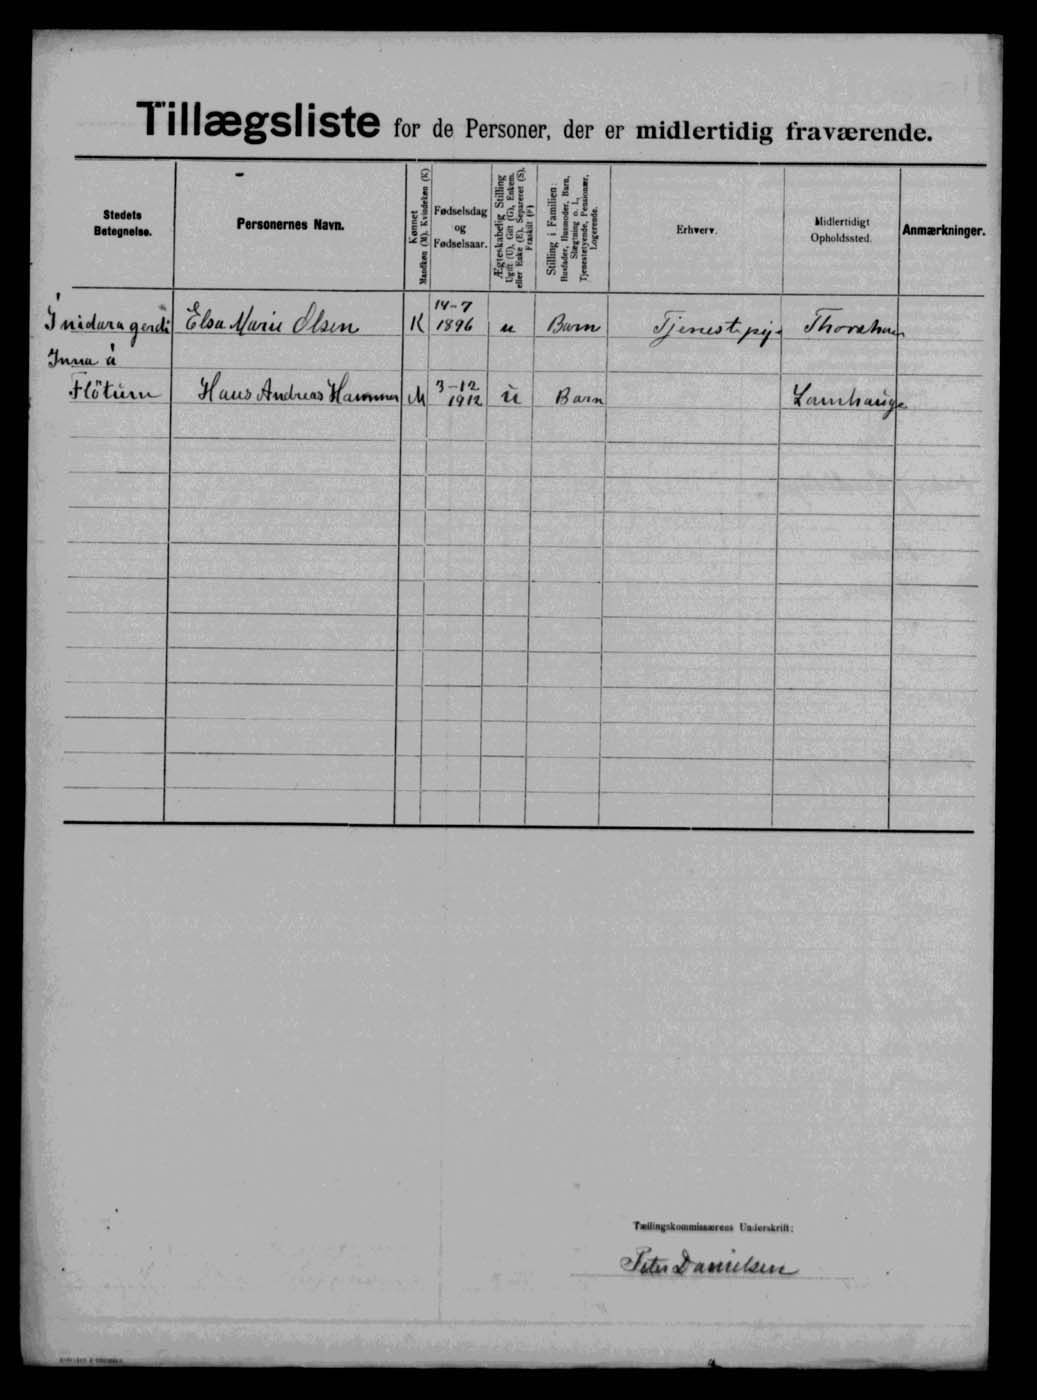 Tillægsliste for de Personer, der er midlertidig fraværende.
Stedets Betegnelse.
Personernes Navn.
Kønnet
Mandkøn (M). Kvindekøn (K)
Fødselsdag
og
Fødselsaar.
Ægteskabelig Stilling
Ugift (U), Gift (G), Enkem.
eller Enke (E), Separeret (S),
Fraskilt (F)
Stilling i Familien:
Husfader, Husmoder, Barn,
Slægtning o. l.,
Tjenestetyende, Pensionær,
Logerende.
Erhverv.
Midlertidigt
Opholdssted.
Anmærkninger.
Í nidaragerdi Elsa Marie Olsen K 14-7 1896 u Barn Tjenestepige Thorshavn
Inna á
Flötum Hans Andreas Hammer M 3-12 1912 u Barn Lamhauge
Tællingskommissærens Underskrift:
Peter Danielsen